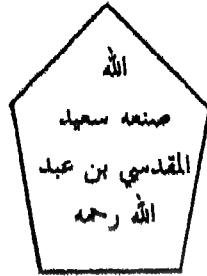 الله
صنعه سعيد
المقدسي بن عبد
الله رحمه